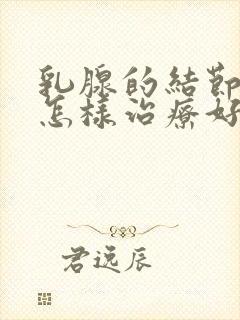 乳腺的結節
怎樣治療好
君远辰